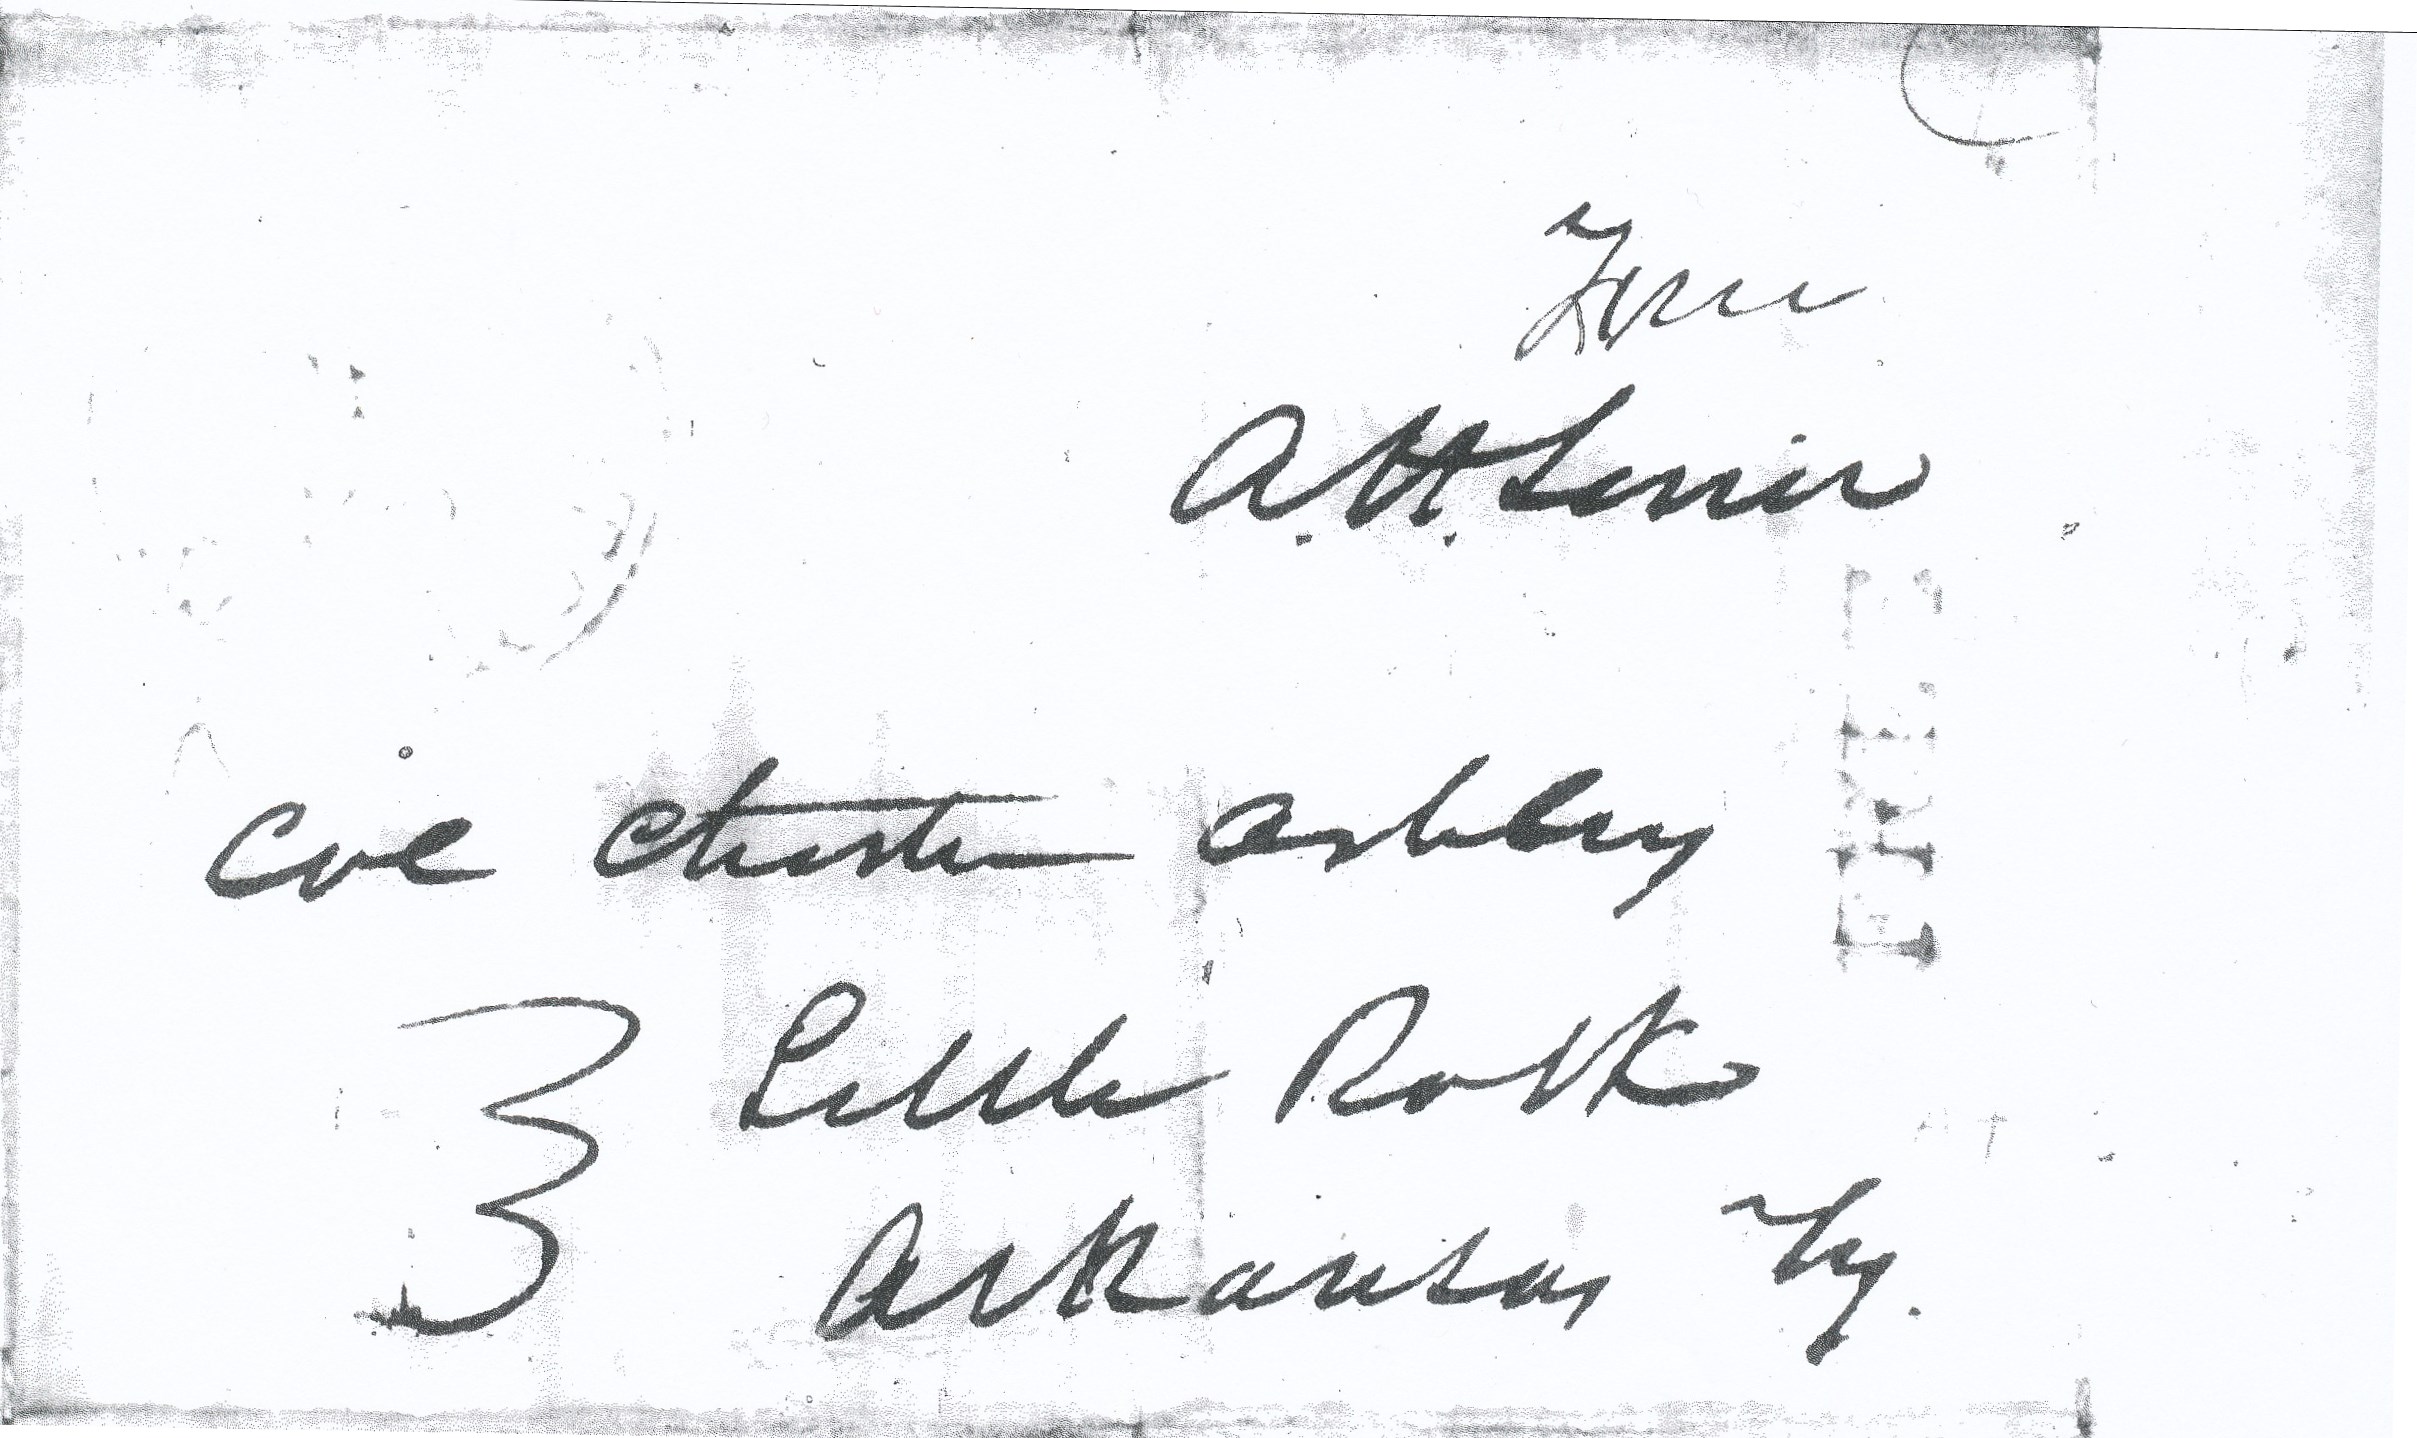 Free
A. H. Sevier
FREE
Col Chester Ashley
Little Rock
Arkansas Ty.